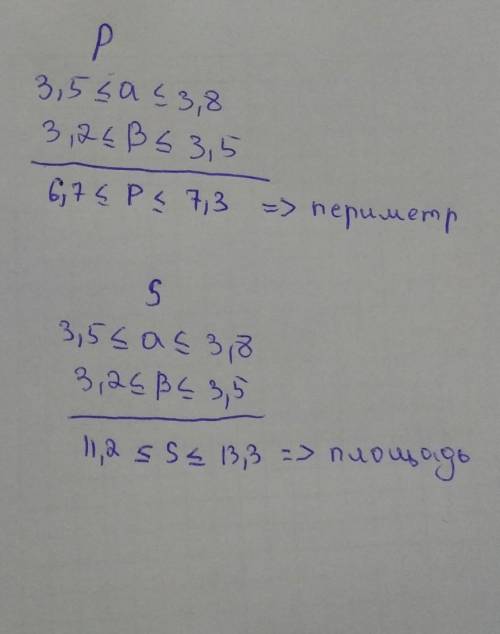 P
3,5 ≤ a ≤ 3,8
3,2 ≤ B ≤ 3,5
6,7 ≤ P ≤ 7,3 => периметр
S
3,5 ≤ a ≤ 3,8
3,2 ≤ B ≤ 3,5
11,2 ≤ S ≤ 13,3 => площадь